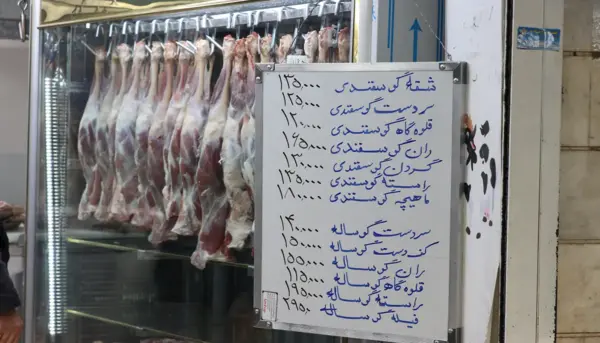 شقه گوسفندی ۱۳۵,۰۰۰
سردست گوسفندی ۱۲۵,۰۰۰
قلوه گاه گوسفندی ۱۲۰,۰۰۰
ران گوسفندی ۱۶۵,۰۰۰
گردن گوسفندی ۱۳۰,۰۰۰
راسته گوسفندی ۱۳۵,۰۰۰
ماهیچه گوسفندی ۱۸۰,۰۰۰
سردست گوساله ۱۴۰,۰۰۰
کف دست گوساله ۱۵۰,۰۰۰
ران گوساله ۱۵۵,۰۰۰
قلوه گاه گوساله ۱۱۵,۰۰۰
راسته گوساله ۱۹۵,۰۰۰
فیله گوساله